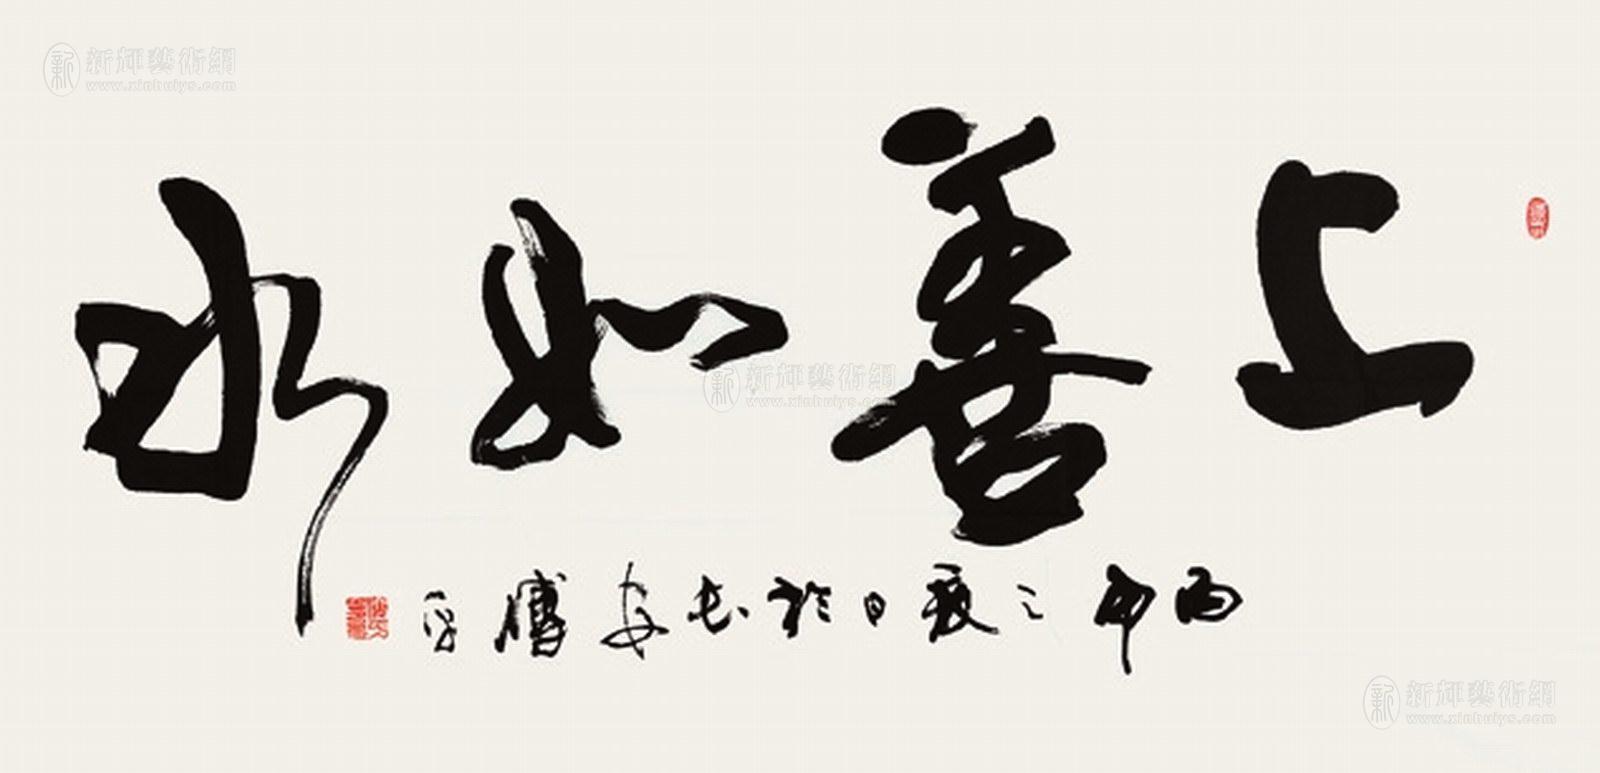 新輝藝術網
www.xinhuiys.com
上善如水
丙申之夏日於長安
新輝藝術網
www.xinhuiys.com
新輝藝術網
www.xinhuiys.com